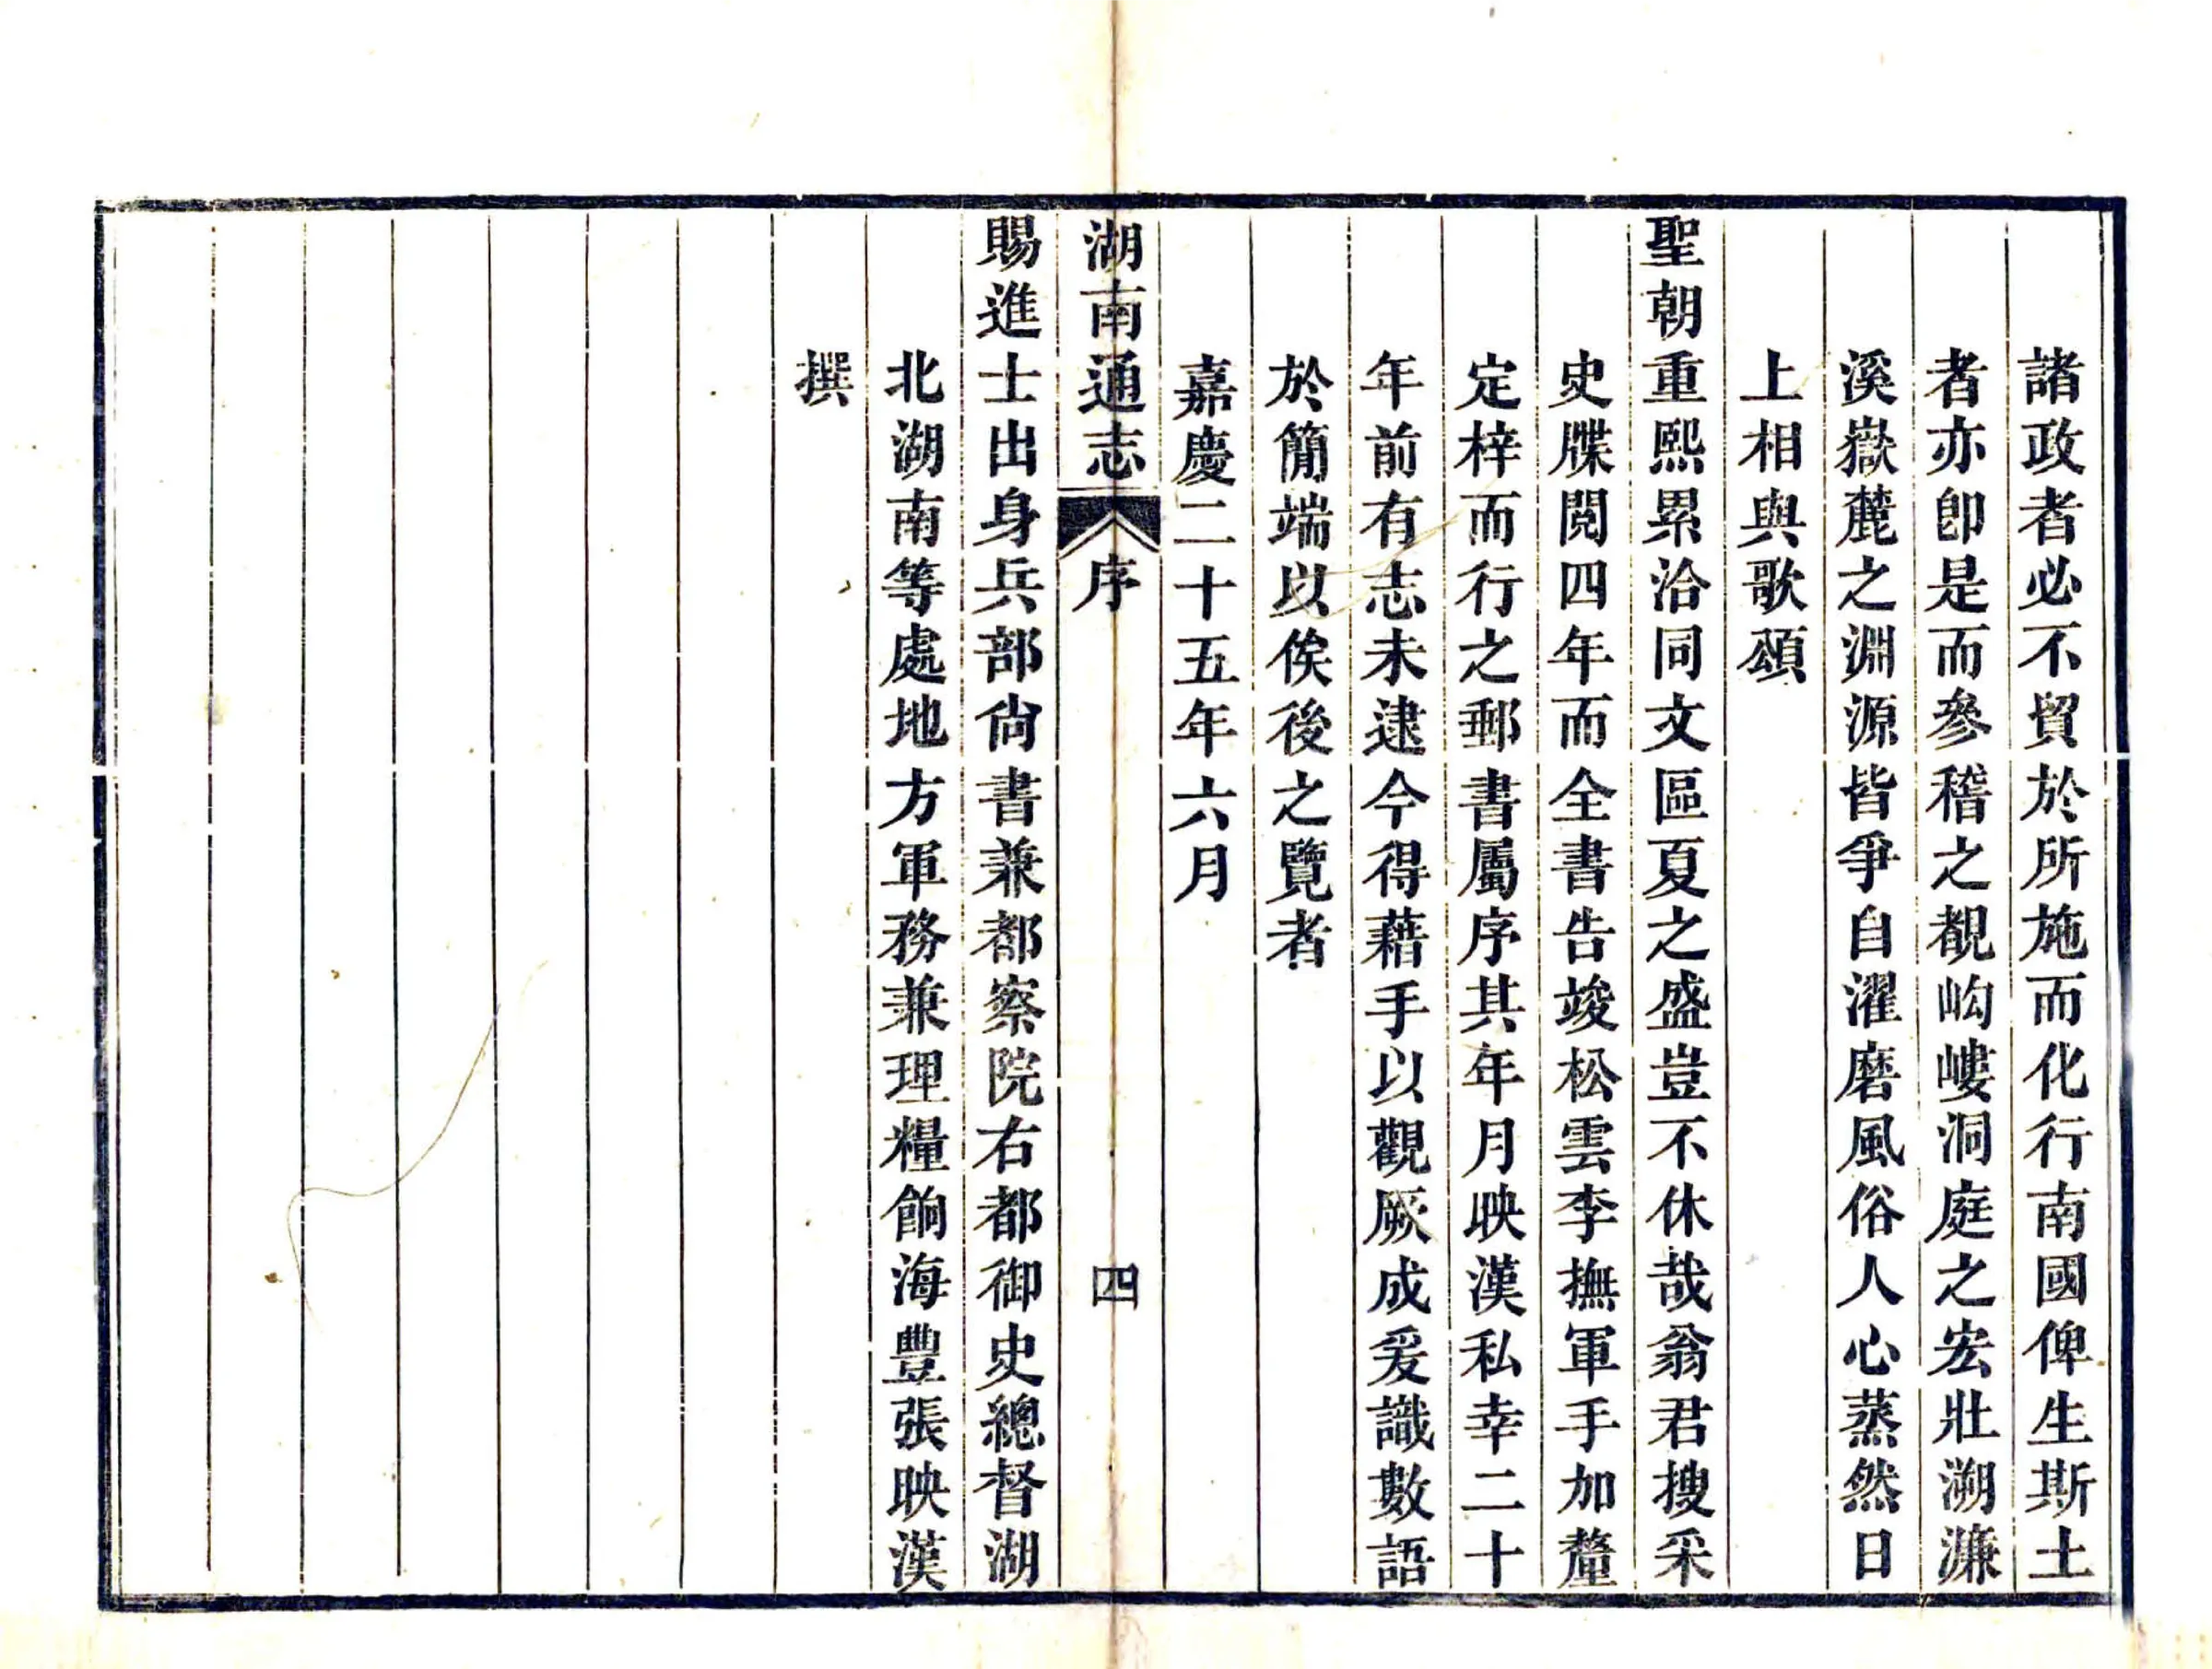 諸政者必不貿於所施而化行南國俾生斯土
者亦卽是而參稽之覩岣嶁洞庭之宏壯溯濂
溪嶽麓之淵源皆爭自濯磨風俗人心蒸然日
上相與歌頌
聖朝重熙累洽同文區夏之盛豈不休哉翁君搜采
史牒閱四年而全書告竣松雲李撫軍手加釐
定梓而行之郵書屬序其年月映漢私幸二十
年前有志未逮今得藉手以觀厥成爰識數語
於簡端以俟後之覽者
嘉慶二十五年六月
湖南通志 序 四
賜進士出身兵部尙書兼都察院右都御史總督湖
北湖南等處地方軍務兼理糧餉海豐張映漢
撰